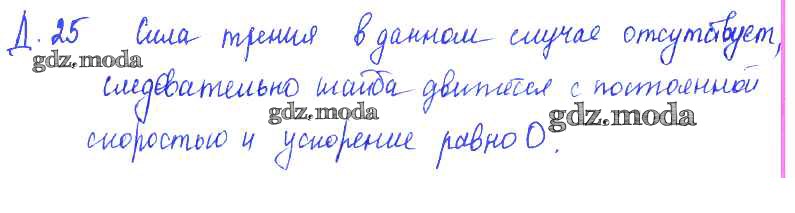 Д. 25 Сила трения в данном случае отсутствует,
gdz.moda
следовательно шайба движется с постоянной
gdz.moda gdz.moda
скоростью и ускорение равно 0.
gdz.moda